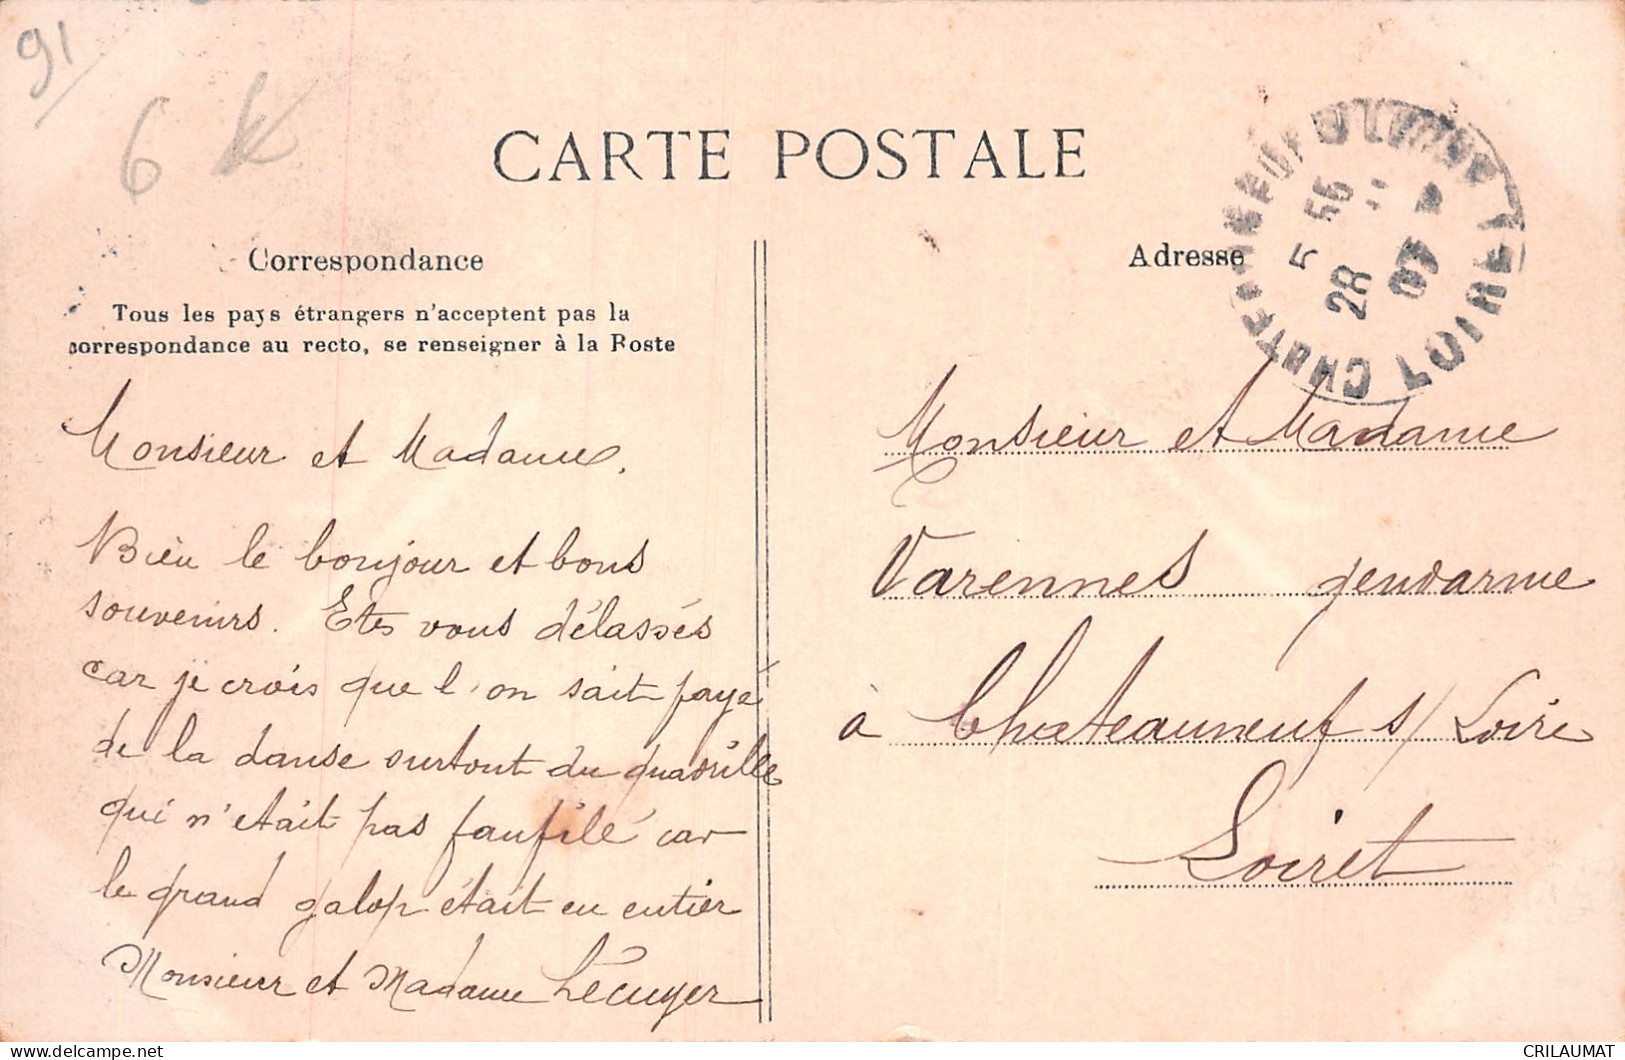 91
6 k
CARTE POSTALE
Correspondance
Tous les pays étrangers n'acceptent pas la
correspondance au recto, se renseigner à la Poste
Monsieur et Madame.
Bien le bonjour et bons
souvenirs. Etes vous délassés
car je crois que l'on sait payé
de la danse surtout du quadrille
qui n'était pas faufilé car
le grand galop était en entier
Monsieur et Madame Lécuyer
Adresse
5 55
28
07
LOIRET
Monsieur et Madame
Varennes gendarme
à Chateauneuf s/ Loire
Loiret
CRILAUMAT